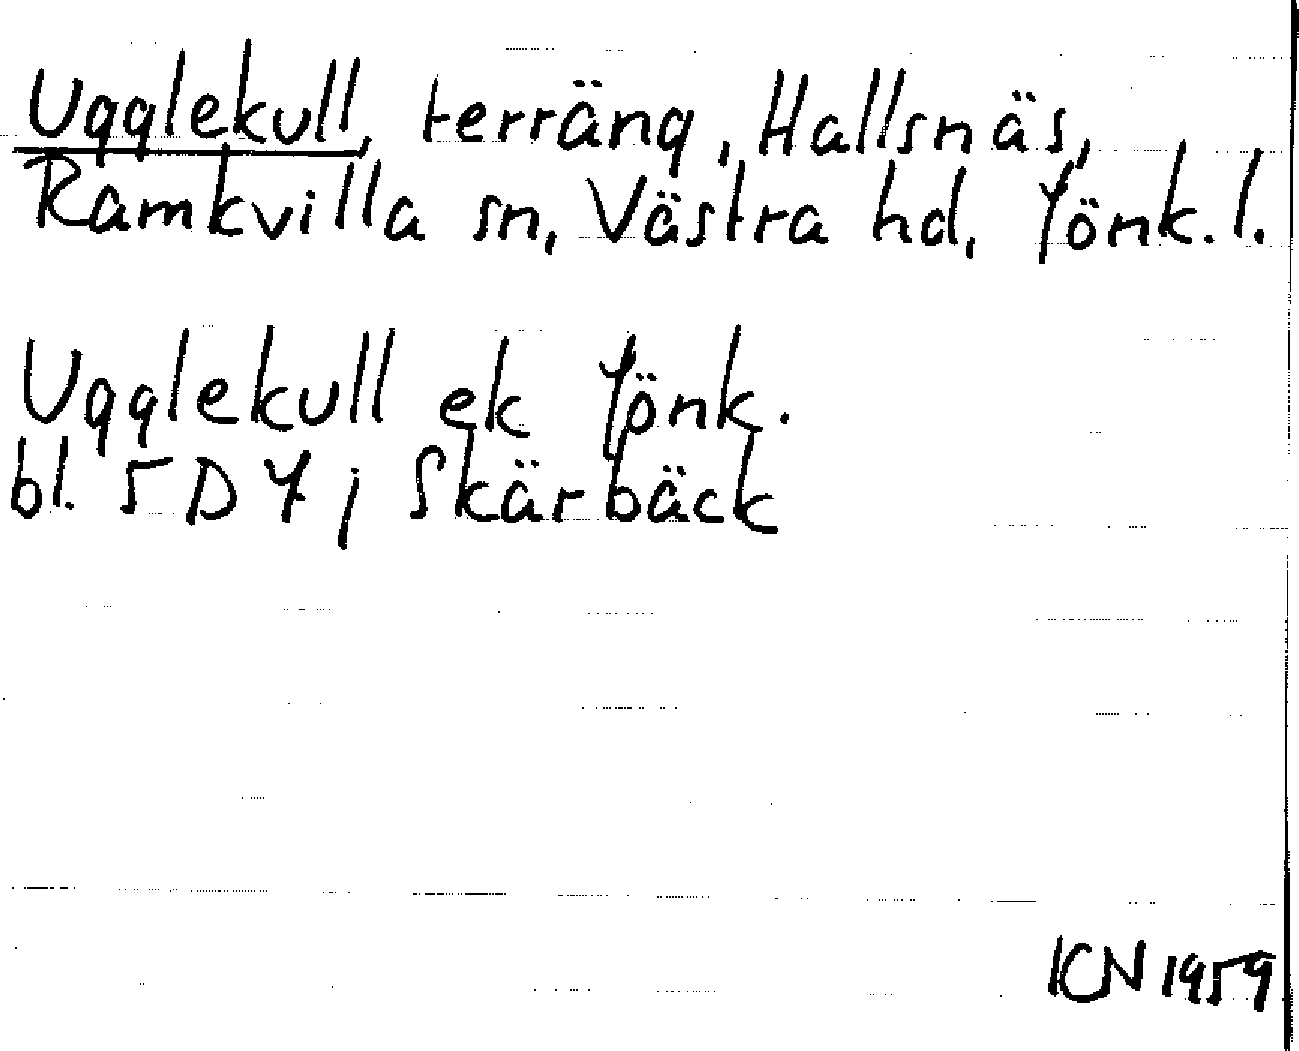 Ugglekull, terräng, Hallsnäs,
Ramkvilla sn, Västra hd, Jönk. l.
Ugglekull ek Jönk.
bl. 5D7j Skärbäck
KN 1959